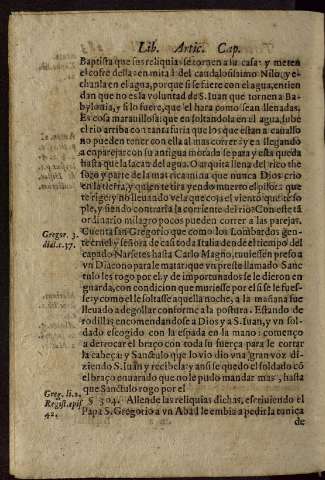 Lib. Artic. Cap.
Baptista que sus reliquias se tornen a su casa: y meten
el cofre dellas en mitad del caudalosissimo Nilo, y e-
chanla en el agua, porque si se fuere con el agua, entien
dan que no es la voluntad de S. Iuan que tornen a Ba-
bylonia, y si lo fuere, que el hara como sean lleuadas.
Es cosa marauillosa: que en soltandola en el agua, sube
el rio arriba con tanta furia que los que estan a cauallo
no pueden tener con ella al mas correr: y en llegando
a enparejar con su antigua morada se para y esta queda
hasta que la saran del agua. O arquita llena del rico the
soro y parte de la mas rica mina que nunca Dios crio
en la tierra, y quien te tira yendo muerto el piloto: que
te rige: y no lleuando vela que coja el viento que te so
ple, y siendo contraria la corriente del rio? Con este tã
ordinario milagro pocos pueden correr a las parejas.
Gregor. 3. dial. c. 37.
Cuenta san Gregorio que como los Lombardos gen-
te cruel y señora de casi toda Italia desde el tiempo del
capado Narsetes hasta Carlo Magno, tuuiessen preso a
vn Diacono para le matar: vn preste llamado Sanc
tulo les rogo por el: y de importunados se le dieron en
guarda, con condicion que muriesse por el si se le fues-
se y como el le soltasse aquella noche, a la mañana fue
lleuado a degollar conforme a la postura. Estando de
rodillas encomendãdose a Dios y a S. Iuan, y vn sol-
dado escogido con la espada en la mano: començo
a derrocar el braço con toda su fuerça para le cortar
la cabeça: y Sanctulo que lo vio dio vna gran voz di-
ziendo S. Iuan y recibela: y ansi se quedo el soldado cõ
el braço enuarado que no le pudo mandar mas, hasta
que Sanctulo rogo por el
Greg. li. 2. Regist. epist. 42.
§ 304. Allende las reliquias dichas, escriuiendo el
Papa S. Gregorio a vn Abad le embia a pedir la tunica
de